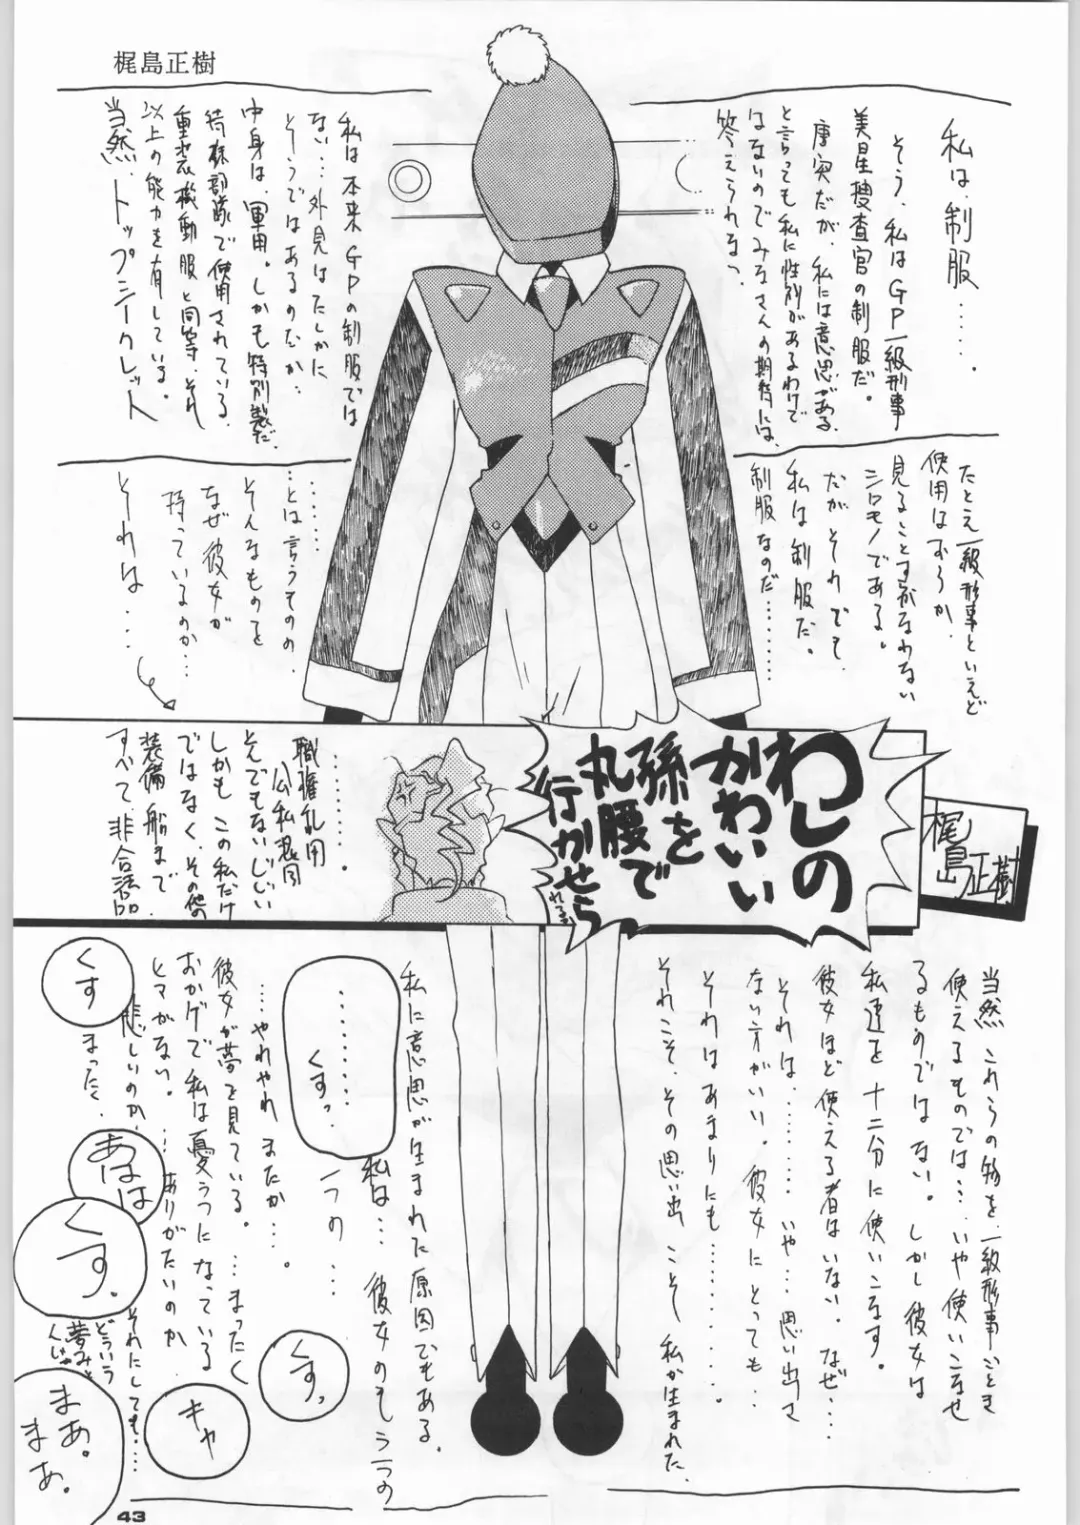 梶島正樹
私は制服……。
そう、私はGP一級刑事
美星捜査官の制服だ。
唐突だが、私には意思がある
と言っても私に性別があるわけで
はないのでみなさんの期待には
答えられない
私は本来GPの制服では
ない…外見はたしかに
そうではあるのだが…
中身は、軍用。しかも特別製だ
特殊部隊で使用されている
重装機動服と同等、それ
以上の能力を有している。
当然、トップシークレット
たとえ一級刑事といえど
使用はおろか、
見ることすらかなわない
シロモノである。
だがそれでも
私は制服だ。
制服なのだ………
…とは言うものの
そんなものを
なぜ彼女が
持っているのか…
それは…
わしの
かわいい
孫を
丸腰で
行かせら
れるか
梶島正樹
………。
職権乱用
公私混同
そんでもないじいい
しかも この私だけ
ではなく、その他の
装備、船まで
すべて、非合法品
当然 これらの物を、一級刑事ごとき
使えるものでは…いや使いこなせ
るものではない。しかし彼女は
私達を十二分に使いこなす。
彼女ほど使える者はいない。なぜ…
それは……いや…思い出さ
ない方がいい。彼女にとっても…
それはあまりにも………。
それこそ、その思い出 こそ 私が生まれた
私に意思が生まれた原因でもある。
私は… 彼女のもう一つの
一つの…
………くすっ
…やれやれ またか…。
彼女が夢を見ている。…まったく
おかげで私は憂うつになっている
ヒマがない。…ありがたいのか
悲しいのか
まったく、
それにしても…
どういう
夢みて
んじゃ
くす
あはは
くす。
くすっ
キャ
まあ。
まあ。
43